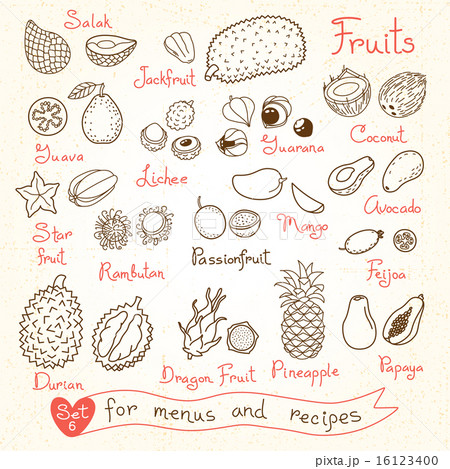 Salak
Jackfruit
Fruits
Guava
Lichee
Guarana
Coconut
Star
fruit
Rambutan
Passionfruit
Mango
Avocado
Feijoa
Durian
Dragon Fruit
Pineapple
Papaya
Set
6
for menus and recipes
PIXTA
pixta.jp - 16123400